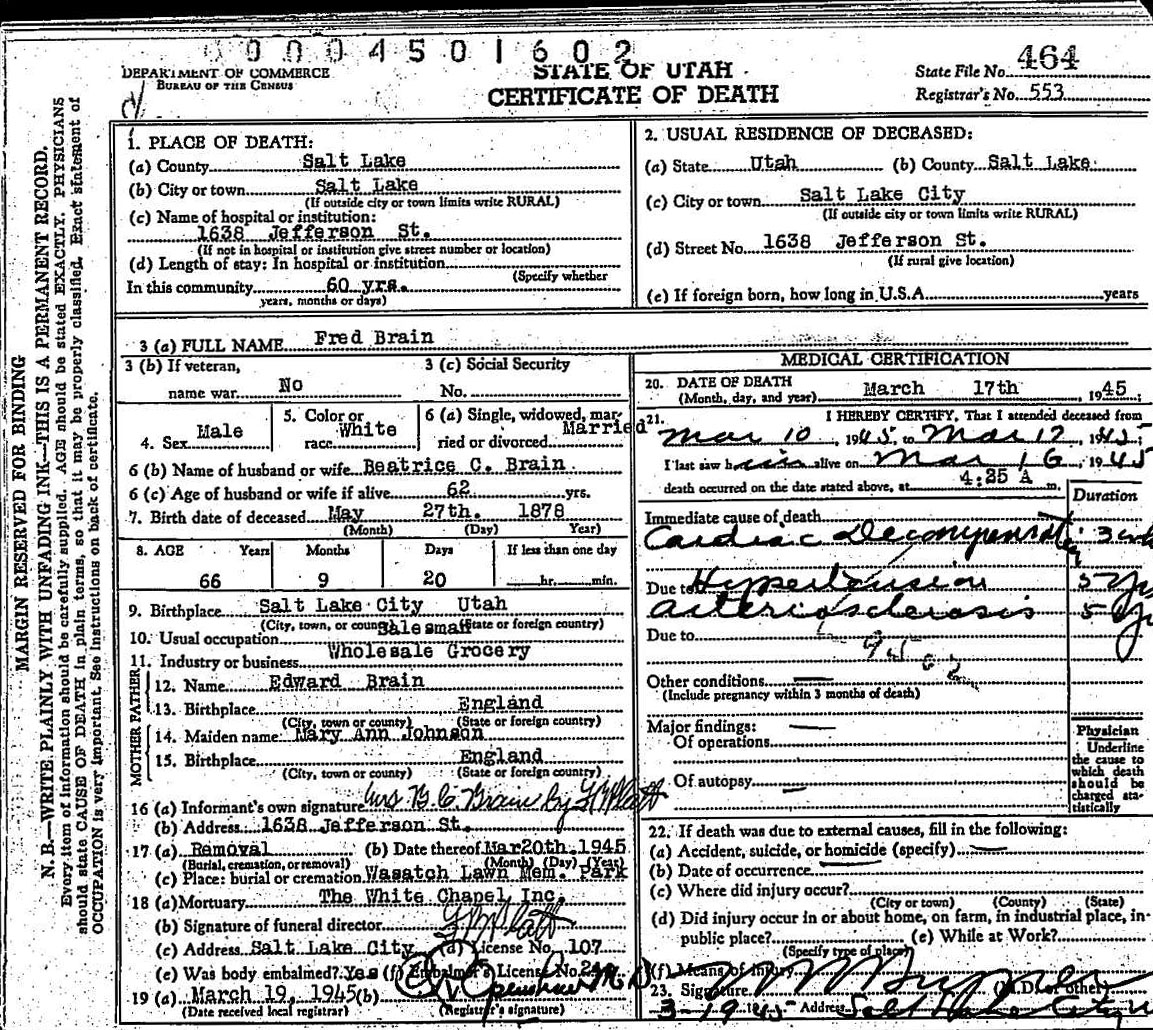 0004501602
DEPARTMENT OF COMMERCE
BUREAU OF THE CENSUS
STATE OF UTAH
CERTIFICATE OF DEATH
State File No. 464
Registrar's No. 553
MARGIN RESERVED FOR BINDING
N. B.—WRITE PLAINLY WITH UNFADING INK—THIS IS A PERMANENT RECORD.
Every item of information should be carefully supplied. AGE should be stated EXACTLY. PHYSICIANS
should state CAUSE OF DEATH in plain terms, so that it may be properly classified. Exact statement of
OCCUPATION is very important. See instructions on back of certificate.
1. PLACE OF DEATH:
(a) County Salt Lake
(b) City or town Salt Lake
(If outside city or town limits write RURAL)
(c) Name of hospital or institution:
1638 Jefferson St.
(If not in hospital or institution give street number or location)
(d) Length of stay: In hospital or institution
(Specify whether
In this community 60 yrs.
years, months or days)
2. USUAL RESIDENCE OF DECEASED:
(a) State Utah (b) County Salt Lake
(c) City or town Salt Lake City
(If outside city or town limits write RURAL)
(d) Street No. 1638 Jefferson St.
(If rural give location)
(e) If foreign born, how long in U.S.A. years
3 (a) FULL NAME Fred Brain
3 (b) If veteran, 3 (c) Social Security
name war No No.
4. Sex Male 5. Color or race White 6 (a) Single, widowed, married or divorced Married
6 (b) Name of husband or wife Beatrice C. Brain
6 (c) Age of husband or wife if alive 62 yrs.
7. Birth date of deceased May 27th. 1878
(Month) (Day) Year)
8. AGE Years Months Days If less than one day
66 9 20 hr. min.
9. Birthplace Salt Lake City Utah
(City, town, or county) (State or foreign country)
10. Usual occupation Salesman
11. Industry or business Wholesale Grocery
FATHER
12. Name Edward Brain
13. Birthplace England
(City, town or county) (State or foreign country)
MOTHER
14. Maiden name Mary Ann Johnson
15. Birthplace England
(City, town or county) (State or foreign country)
16 (a) Informant's own signature Mrs B. C. Brain by
(b) Address 1638 Jefferson St.
17 (a) Removal (b) Date thereof Mar 20th. 1945
(Burial, cremation, or removal) (Month) (Day) (Year)
(c) Place: burial or cremation Wasatch Lawn Mem. Park
18 (a) Mortuary The White Chapel Inc.
(b) Signature of funeral director
(c) Address Salt Lake City (d) License No. 107
(e) Was body embalmed? Yes (f) Embalmer's License No.
19 (a) March 19, 1945 (b) M D
(Date received local registrar) (Registrar's signature)
MEDICAL CERTIFICATION
20. DATE OF DEATH March 17th, 1945
(Month, day, and year)
21. I HEREBY CERTIFY, That I attended deceased from
Mar 10, 1945 to Mar 17, 1945;
I last saw him alive on Mar 16, 1945
death occurred on the date stated above, at 4:25 A m.
Duration
Immediate cause of death
Cardiac Decompensation 3 wk
Due to Hypertension 5 yr
Arteriosclerosis 5 yr
Due to
Other conditions —
(Include pregnancy within 3 months of death)
Major findings: —
Of operations
Of autopsy —
Physician
Underline
the cause to
which death
should be
charged sta-
tistically
22. If death was due to external causes, fill in the following:
(a) Accident, suicide, or homicide (specify) —
(b) Date of occurrence
(c) Where did injury occur?
(City or town) (County) (State)
(d) Did injury occur in or about home, on farm, in industrial place, in-
public place? (e) While at Work?
(Specify type of place)
(f) Means of injury
23. Signature (M.D. or other)
3-19 45 Address Salt Lake City U